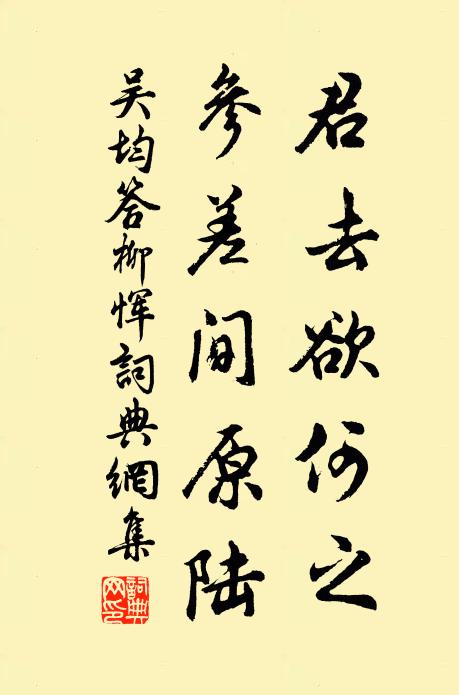 君去欲何之
参差间原陆
吴均答柳恽詞典網集
詞典網印